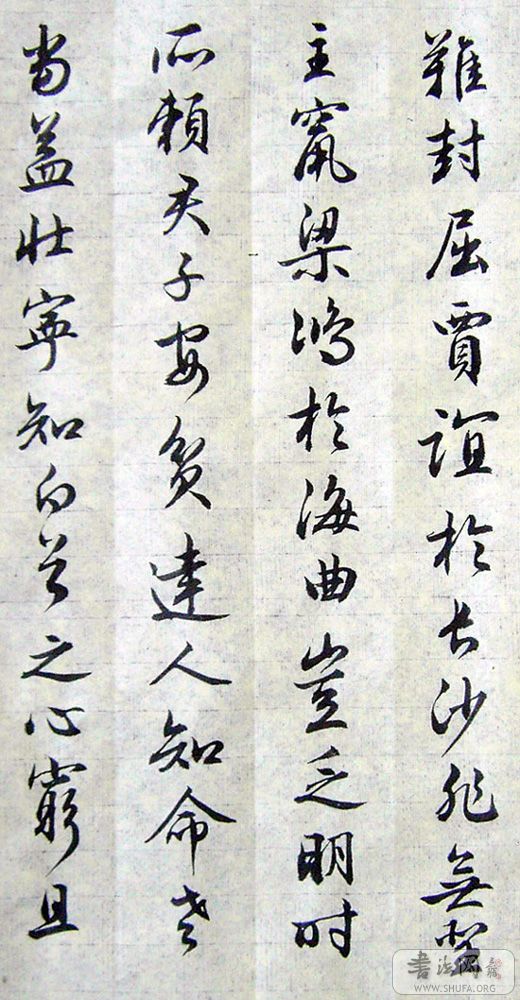 難封屈賈誼於長沙非無聖
主竄梁鴻於海曲豈乏明時
所賴君子安貧達人知命老
當益壯寧知白首之心窮且
WWW.SHUFA.ORG